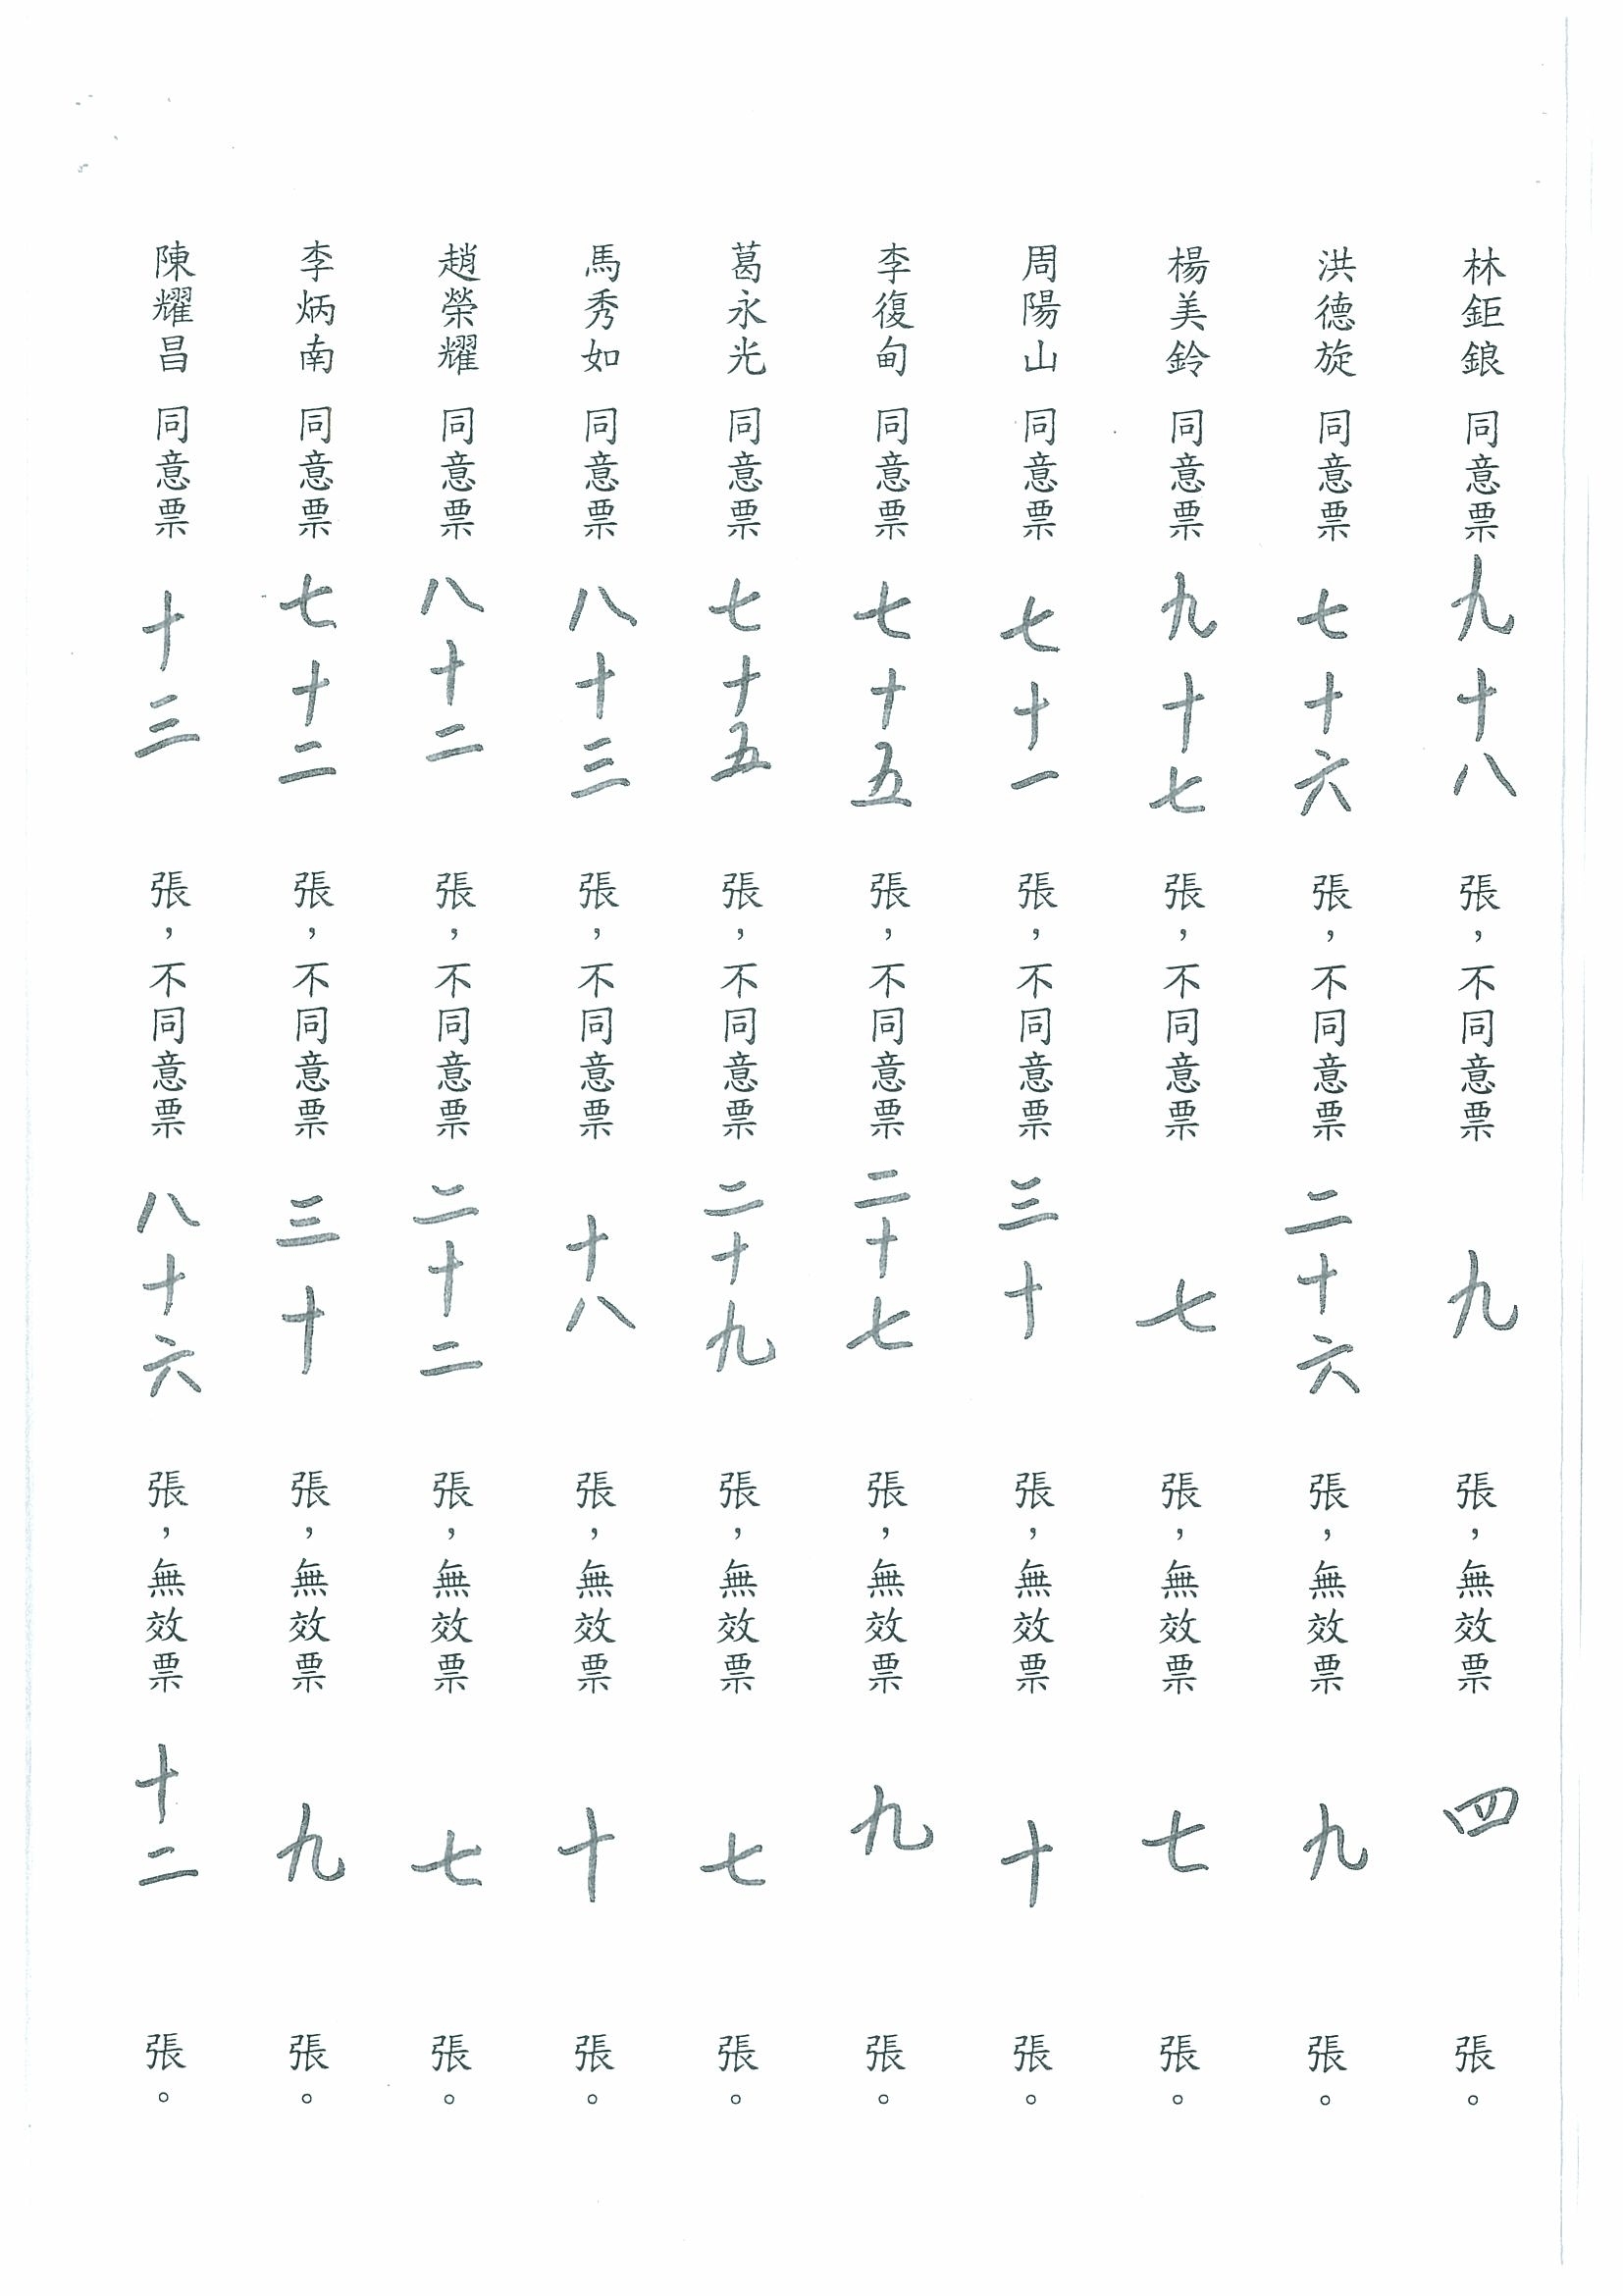 林鉅鋃同意票九十八張，不同意票九張，無效票四張。
洪德旋同意票七十六張，不同意票二十六張，無效票九張。
楊美鈴同意票九十七張，不同意票七張，無效票七張。
周陽山同意票七十一張，不同意票三十張，無效票十張。
李復甸同意票七十五張，不同意票二十七張，無效票九張。
葛永光同意票七十五張，不同意票二十九張，無效票七張。
馬秀如同意票八十三張，不同意票十八張，無效票十張。
趙榮耀同意票八十二張，不同意票二十二張，無效票七張。
李炳南同意票七十二張，不同意票三十張，無效票九張。
陳耀昌同意票十三張，不同意票八十六張，無效票十二張。